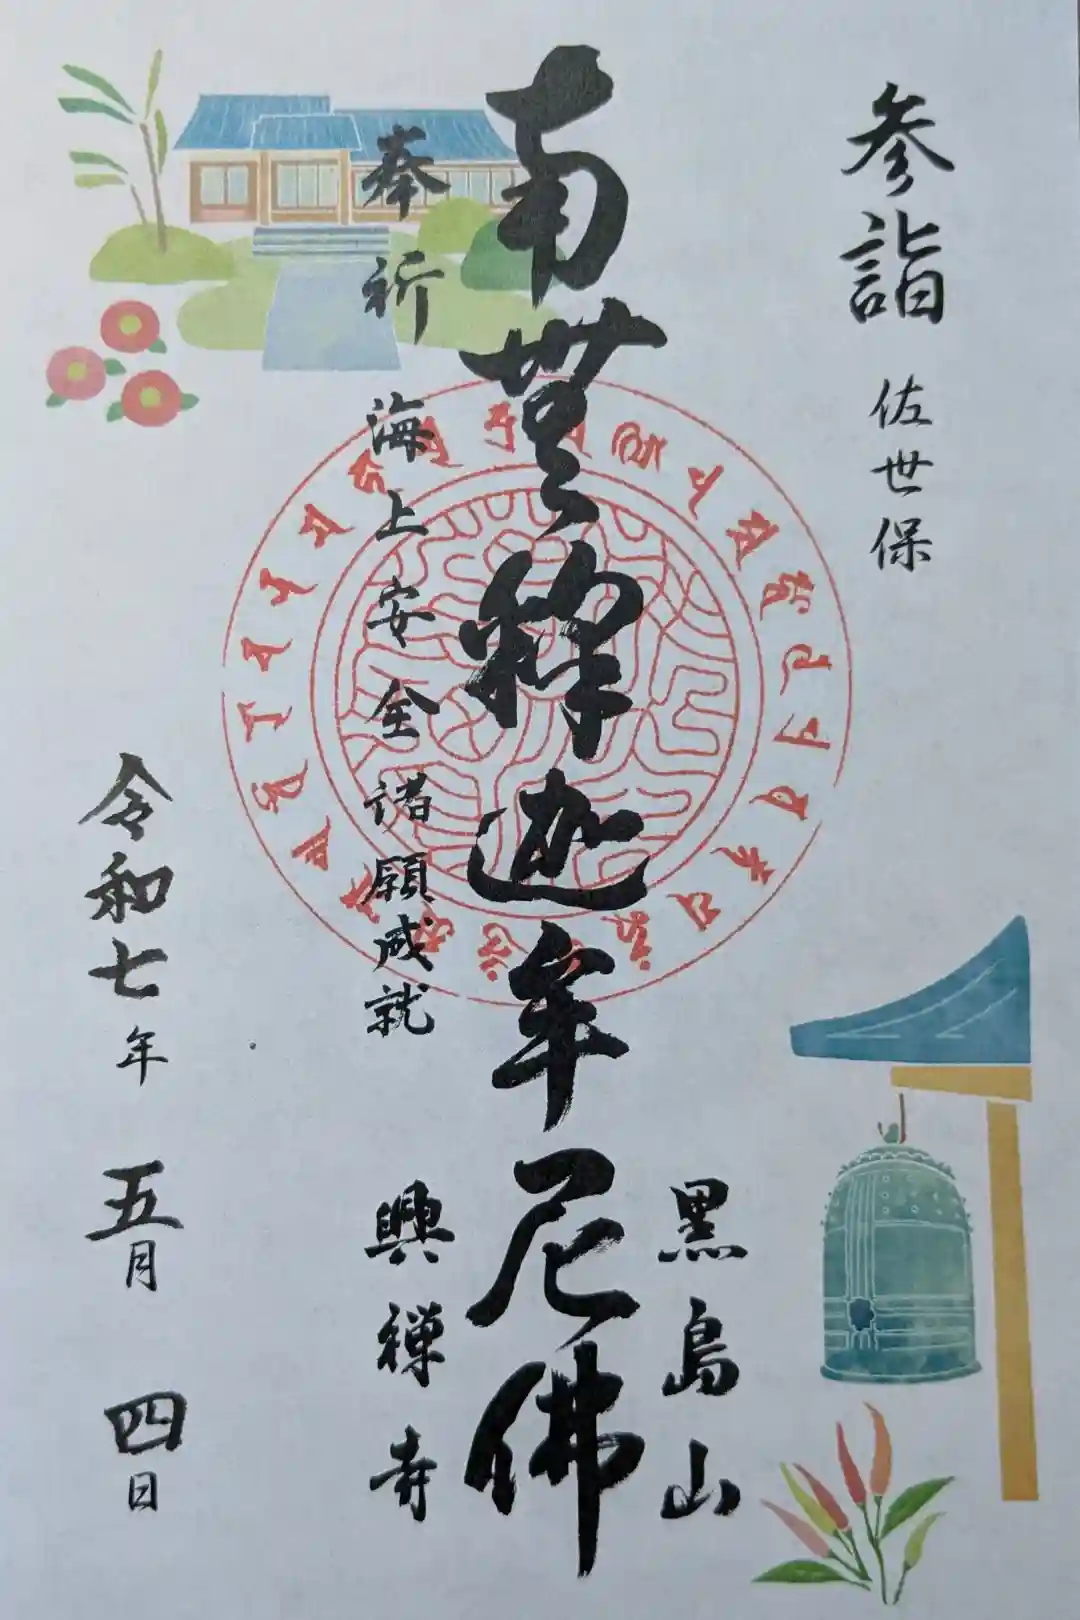 参詣 佐世保
黒島山
南無釋迦牟尼佛
奉祈 海上安全諸願成就
興禅寺
令和七年 五月 四日